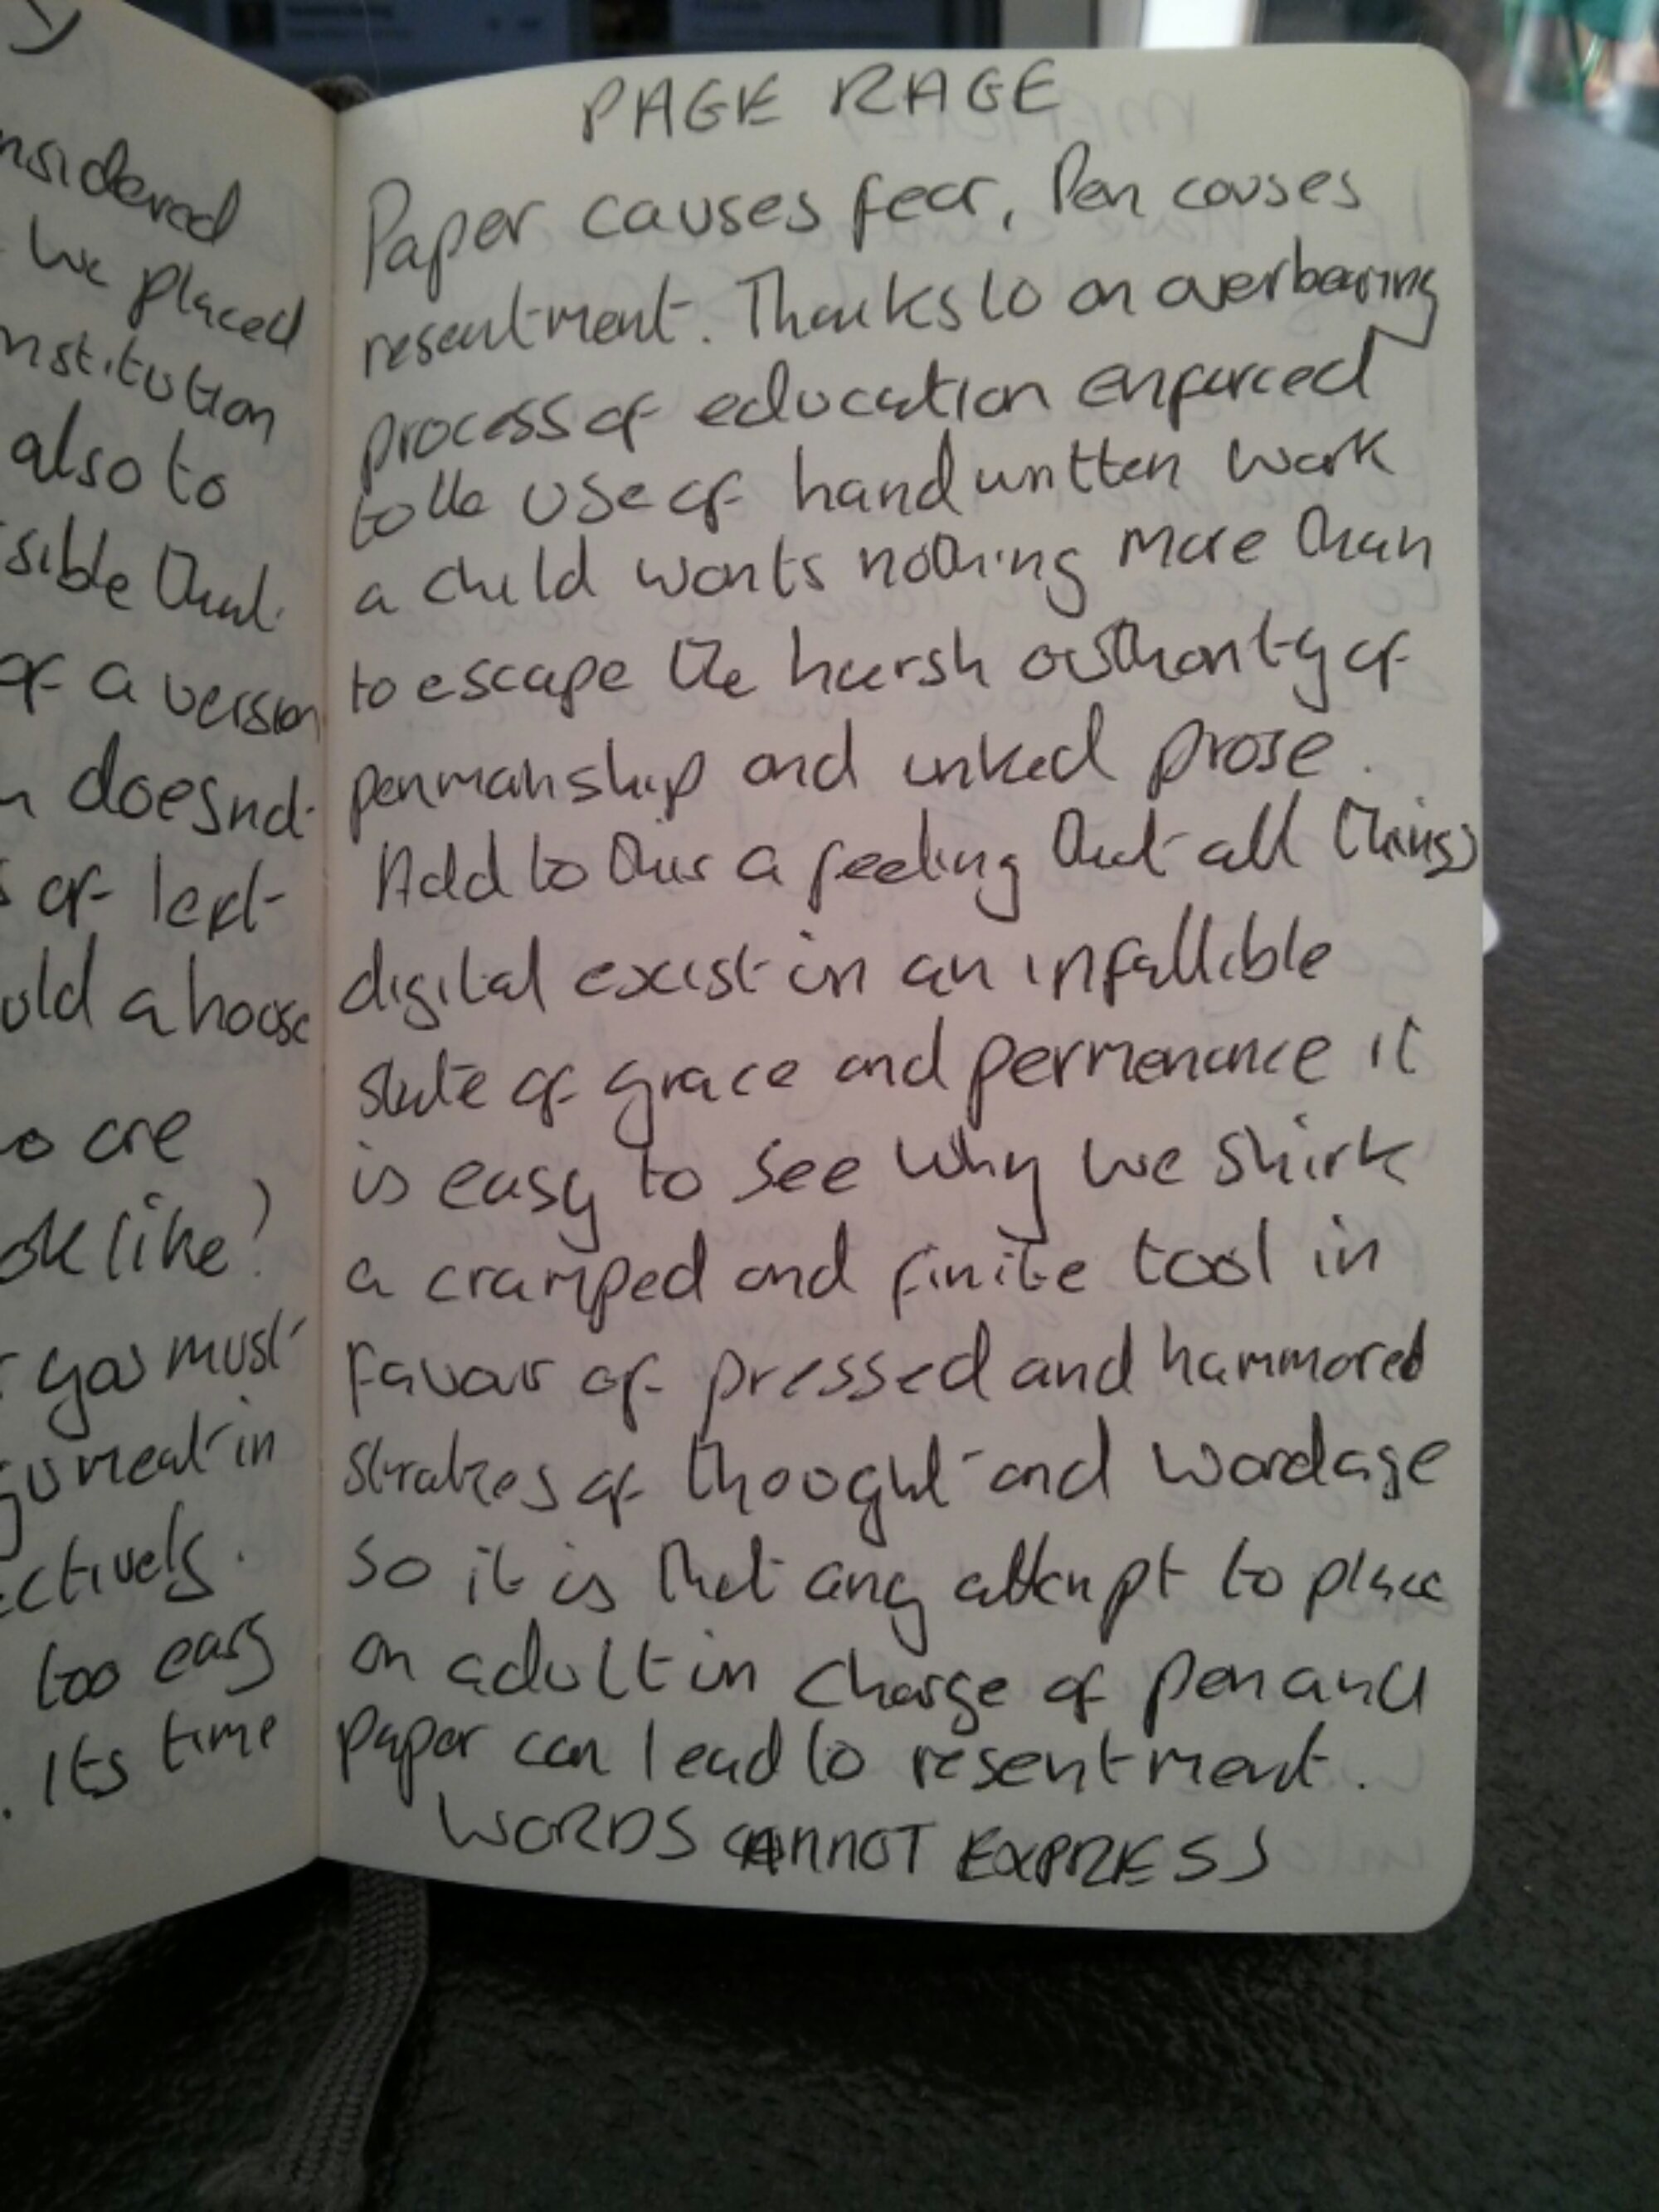 y
nsidered
we placed
nstitution
also to
sible that
of a version
doesnt
of left
uld a hoose
o are
ok like?
you must
gument in
ctively.
too easy
. Its time
PAGE RAGE
Paper causes fear, Pen causes
resentment. Thanks to an overbearing
process of education enforced
to the use of hand written work
a child wants nothing more than
to escape the harsh authority of
penmanship and inked prose.
Add to this a feeling that all things
digital exist in an infallible
state of grace and permenance it
is easy to see why we shirk
a cramped and finite tool in
favour of pressed and hammored
strokes of thought and wordage
so it is that any attempt to place
an adult in charge of pen and
paper can lead to resentment.
WORDS CANNOT EXPRESS